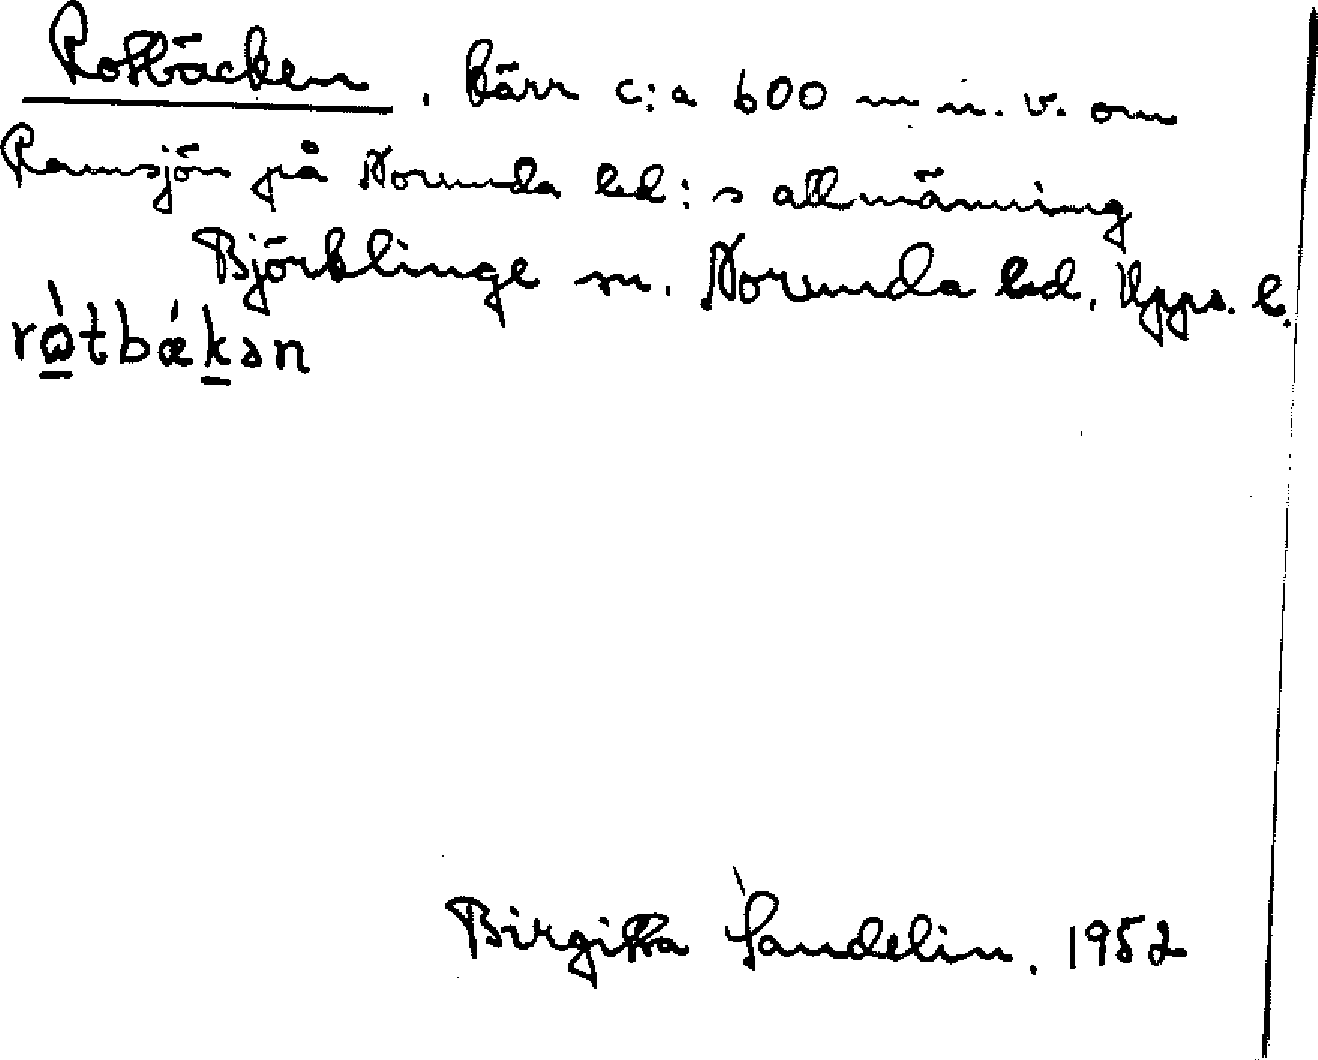 Rotbäcken, kärr c:a 600 m n. v. om
Ramsjön på Norunda hd:s allmänning
Björklinge sn. Norunda hd. Upps. l.
rὼtbǽkən
Birgitta Sandelin. 1952